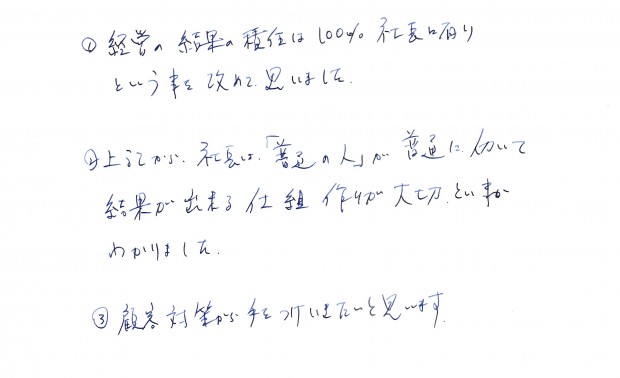 ① 経営の結果の責任は100% 社長に有り
という事を改めて思いました.
② 上記から、社長は、「普通の人」が普通に働いて
結果が出来る仕組作りが大切.という事が
わかりました.
③ 顧客対策から手をつけいきたいと思います.